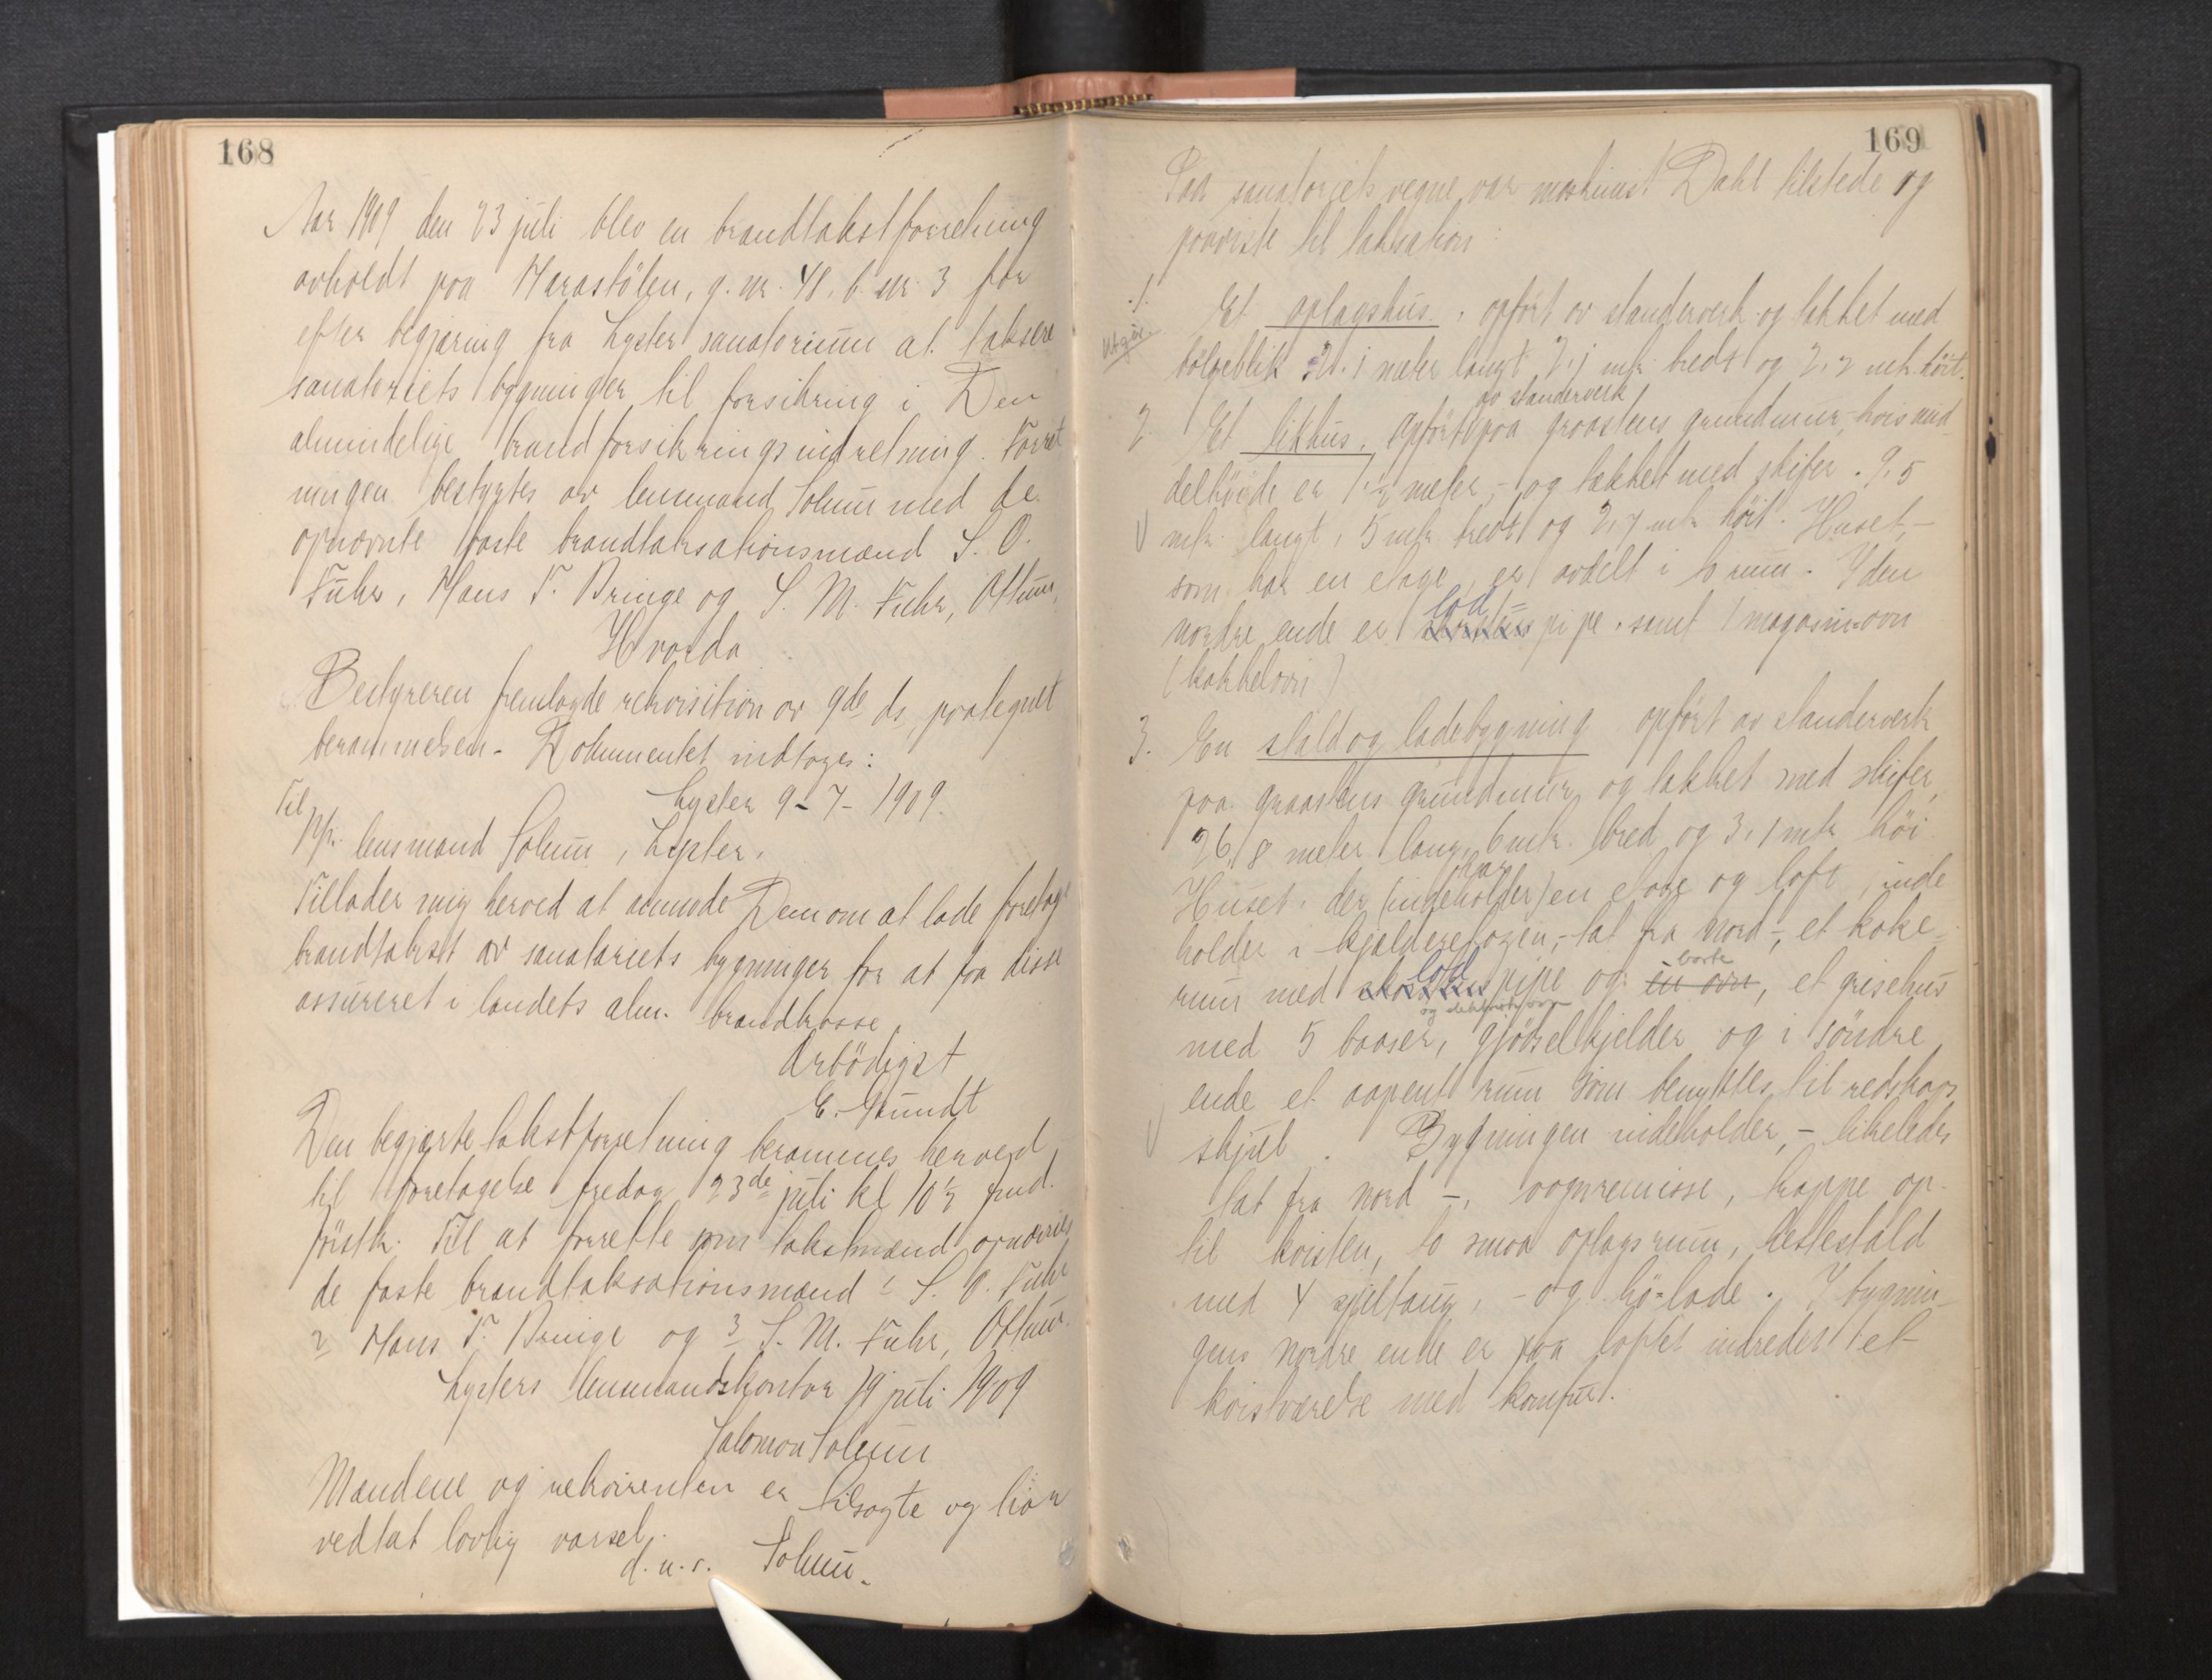 168
Aar 1909 den 23 juli blev en brandtakstforretning
avholdt paa Harastölen, g. nr. 48, b. nr. 3 for
efter begjæring fra Lyster sanatorium at taksere
sanatoriets bygninger til forsikring i Den
almindelige brandforsikringsindretning. Forret
ningen bestyrtes av lensmand Solum med de
opnævnte faste brandtaksationsmænd S. O.
Fuhr, Hans T. Bringe og S. M. Fuhr, Oftun,
Hvorda
Bestyreren fremlagde rekvisition av 9de ds. paategnet
berammelsen. Dokumentet indtages:
Lyster 9-7-1909.
Til
Hr. lensmand Solum, Lyster.
Tillader mig herved at anmode Dem om at lade foretage
brandtakst av sanatoriets bygninger for at faa disse
assureret i landets alm. brandkasse
Ærbödigst
E. Gundt
Den begjærte takstforretning berammes herved
til foretagelse fredag 23de juli kl 10½ fmd.
förstk. Til at forrette som takstmænd opnævnes
de faste brandtaksationsmænd 1 S. O. Fuhr
2 Hans T. Bringe og 3 S. M. Fuhr, Oftun.
Lysters lensmandskontor 19 juli 1909
Salomon Solum
Mændene og rekvirenten er tilsagte og har
vedtat lovlig varsel.
d.u.s. Solum.
169
Paa sanatoriets vegne var maskinist Dahl tilstede og
paaviste til taksation:
1. Et oplagshus, opfört av standerverk og tækket med
Utgår
bölgeblik 21.1 meter langt 7,1 mtr. bredt og 2,2 mtr. höit.
av standerverk
2 Et likhus, opfört paa graastens grundmur, hvis mid
delhöide er 1½ meter, - og tækket med skifer. 9,5
mtr. langt, 5 mtr. bredt og 2,7 mtr. höit. Huset, -
som har en etage, er avdelt i to rum. I den
lod
nordre ende er pipe, samt 1 magasin-ovn
(kakkelovn)
3. En stald og ladebygning opfört av standerverk
paa graastens grundmur og tækket med skifer,
26,8 meter lang, 6 mtr. bred og 3,1 mtr. höi
har
Huset, der (indeholder) en etage og loft, inde
holder i kjælderetagen, - tat fra nord -, et koke-
lod borte
rum med pipe og en ovn, et grisehus
med 5 baaser, gjödselkjelder og i söndre
ende et aapent rum som benyttes til redskaps
skjul. Bygningen indeholder, - likeledes
tat fra nord -, vognremisse, trappe op-
til kvisten, to smaa oplagsrum, hestestald
med 4 spiltaug, - og hö-lade. I bygnin-
gens nordre ende er paa loftet indredet et
kvistværelse med komfur.